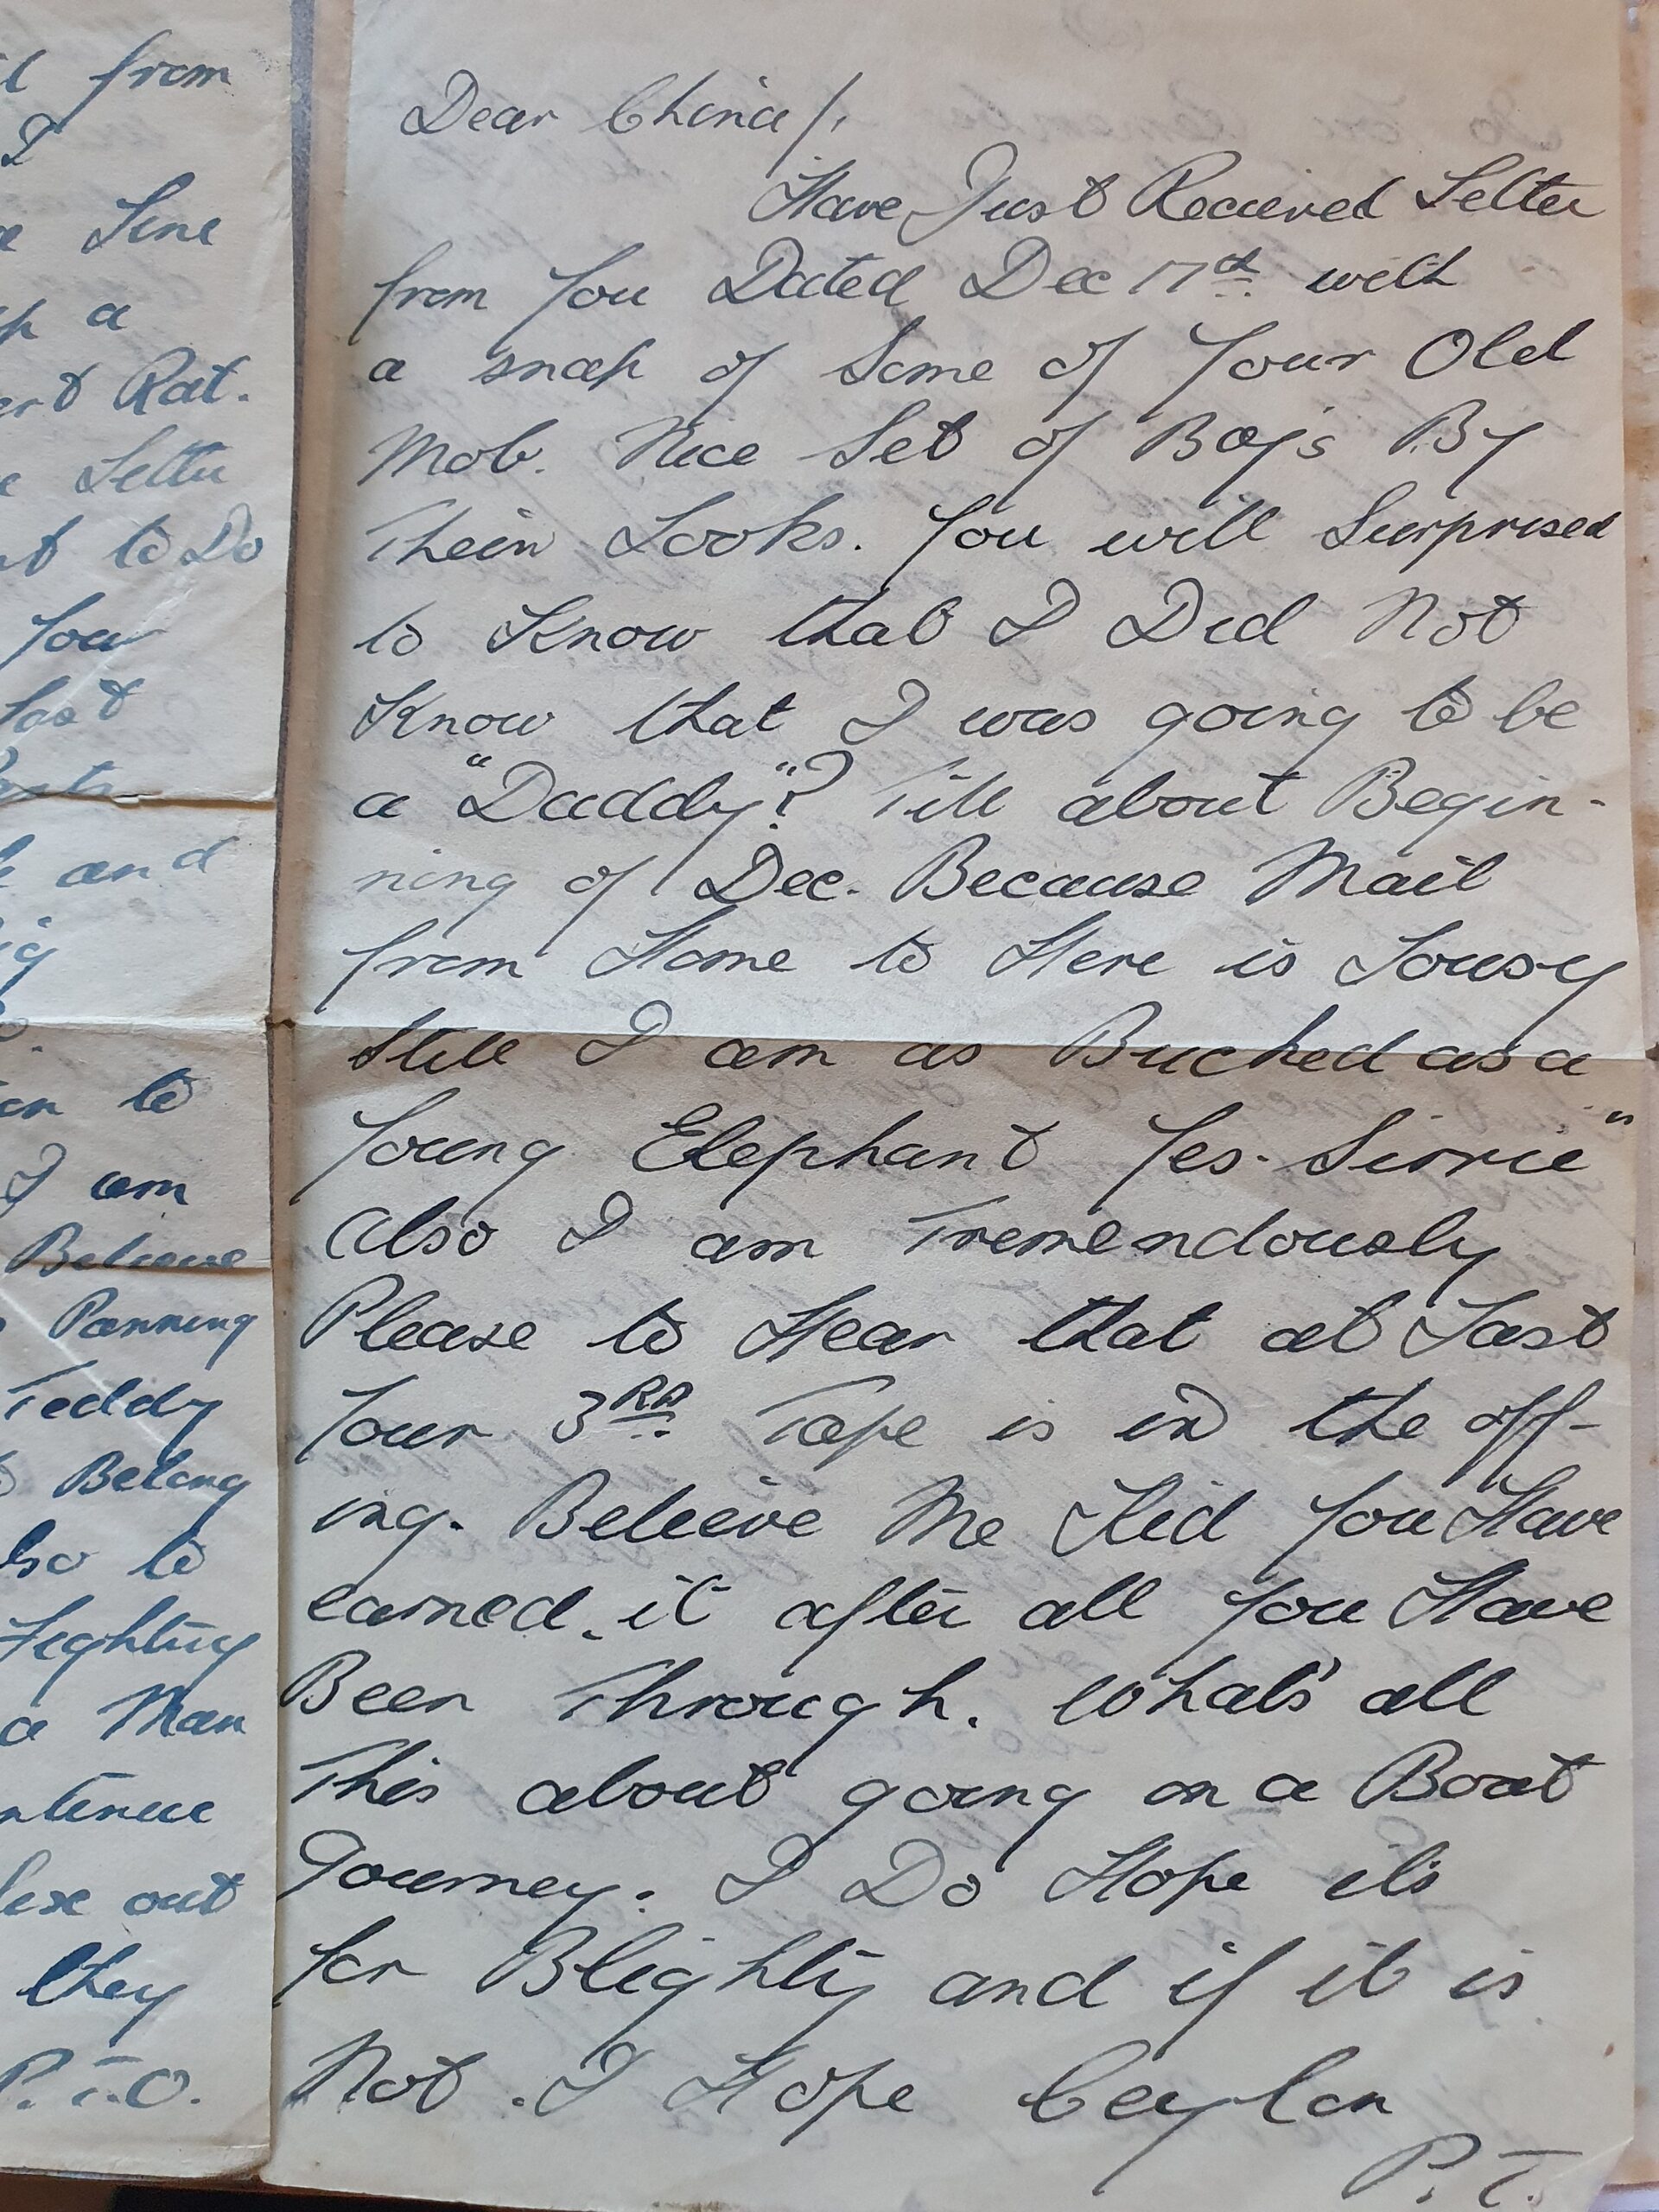 from
I
Line
a
Rat.
Letter
to Do
You
Last
and
to
I am
Believe
Panning
Teddy
Belong
to
Fighting
a Man
out
they
P.T.O.
Dear China/,
Have Just Recieved Letter
from You Dated Dec 17th with
a snap of Some of Your Old
Mob. Nice Set of Boys By
Their Looks. You will Surprised
to Know that I Did Not
Know that I was going to be
a "Daddy"? Till about Begin-
ning of Dec. Because Mail
from Home to Here is Lousy
Still I am as Bucked as a
Young Elephant Yes. Sirrie"
Also I am Tremendously
Please to Hear that at Last
Your 3RD Tape is in the off-
ing. Believe Me Kid You Have
earned it after all You Have
Been Through. What's all
This about going on a Boat
Journey. I Do Hope its
for Blighty and if it is
Not. I Hope Ceylon
P.T.